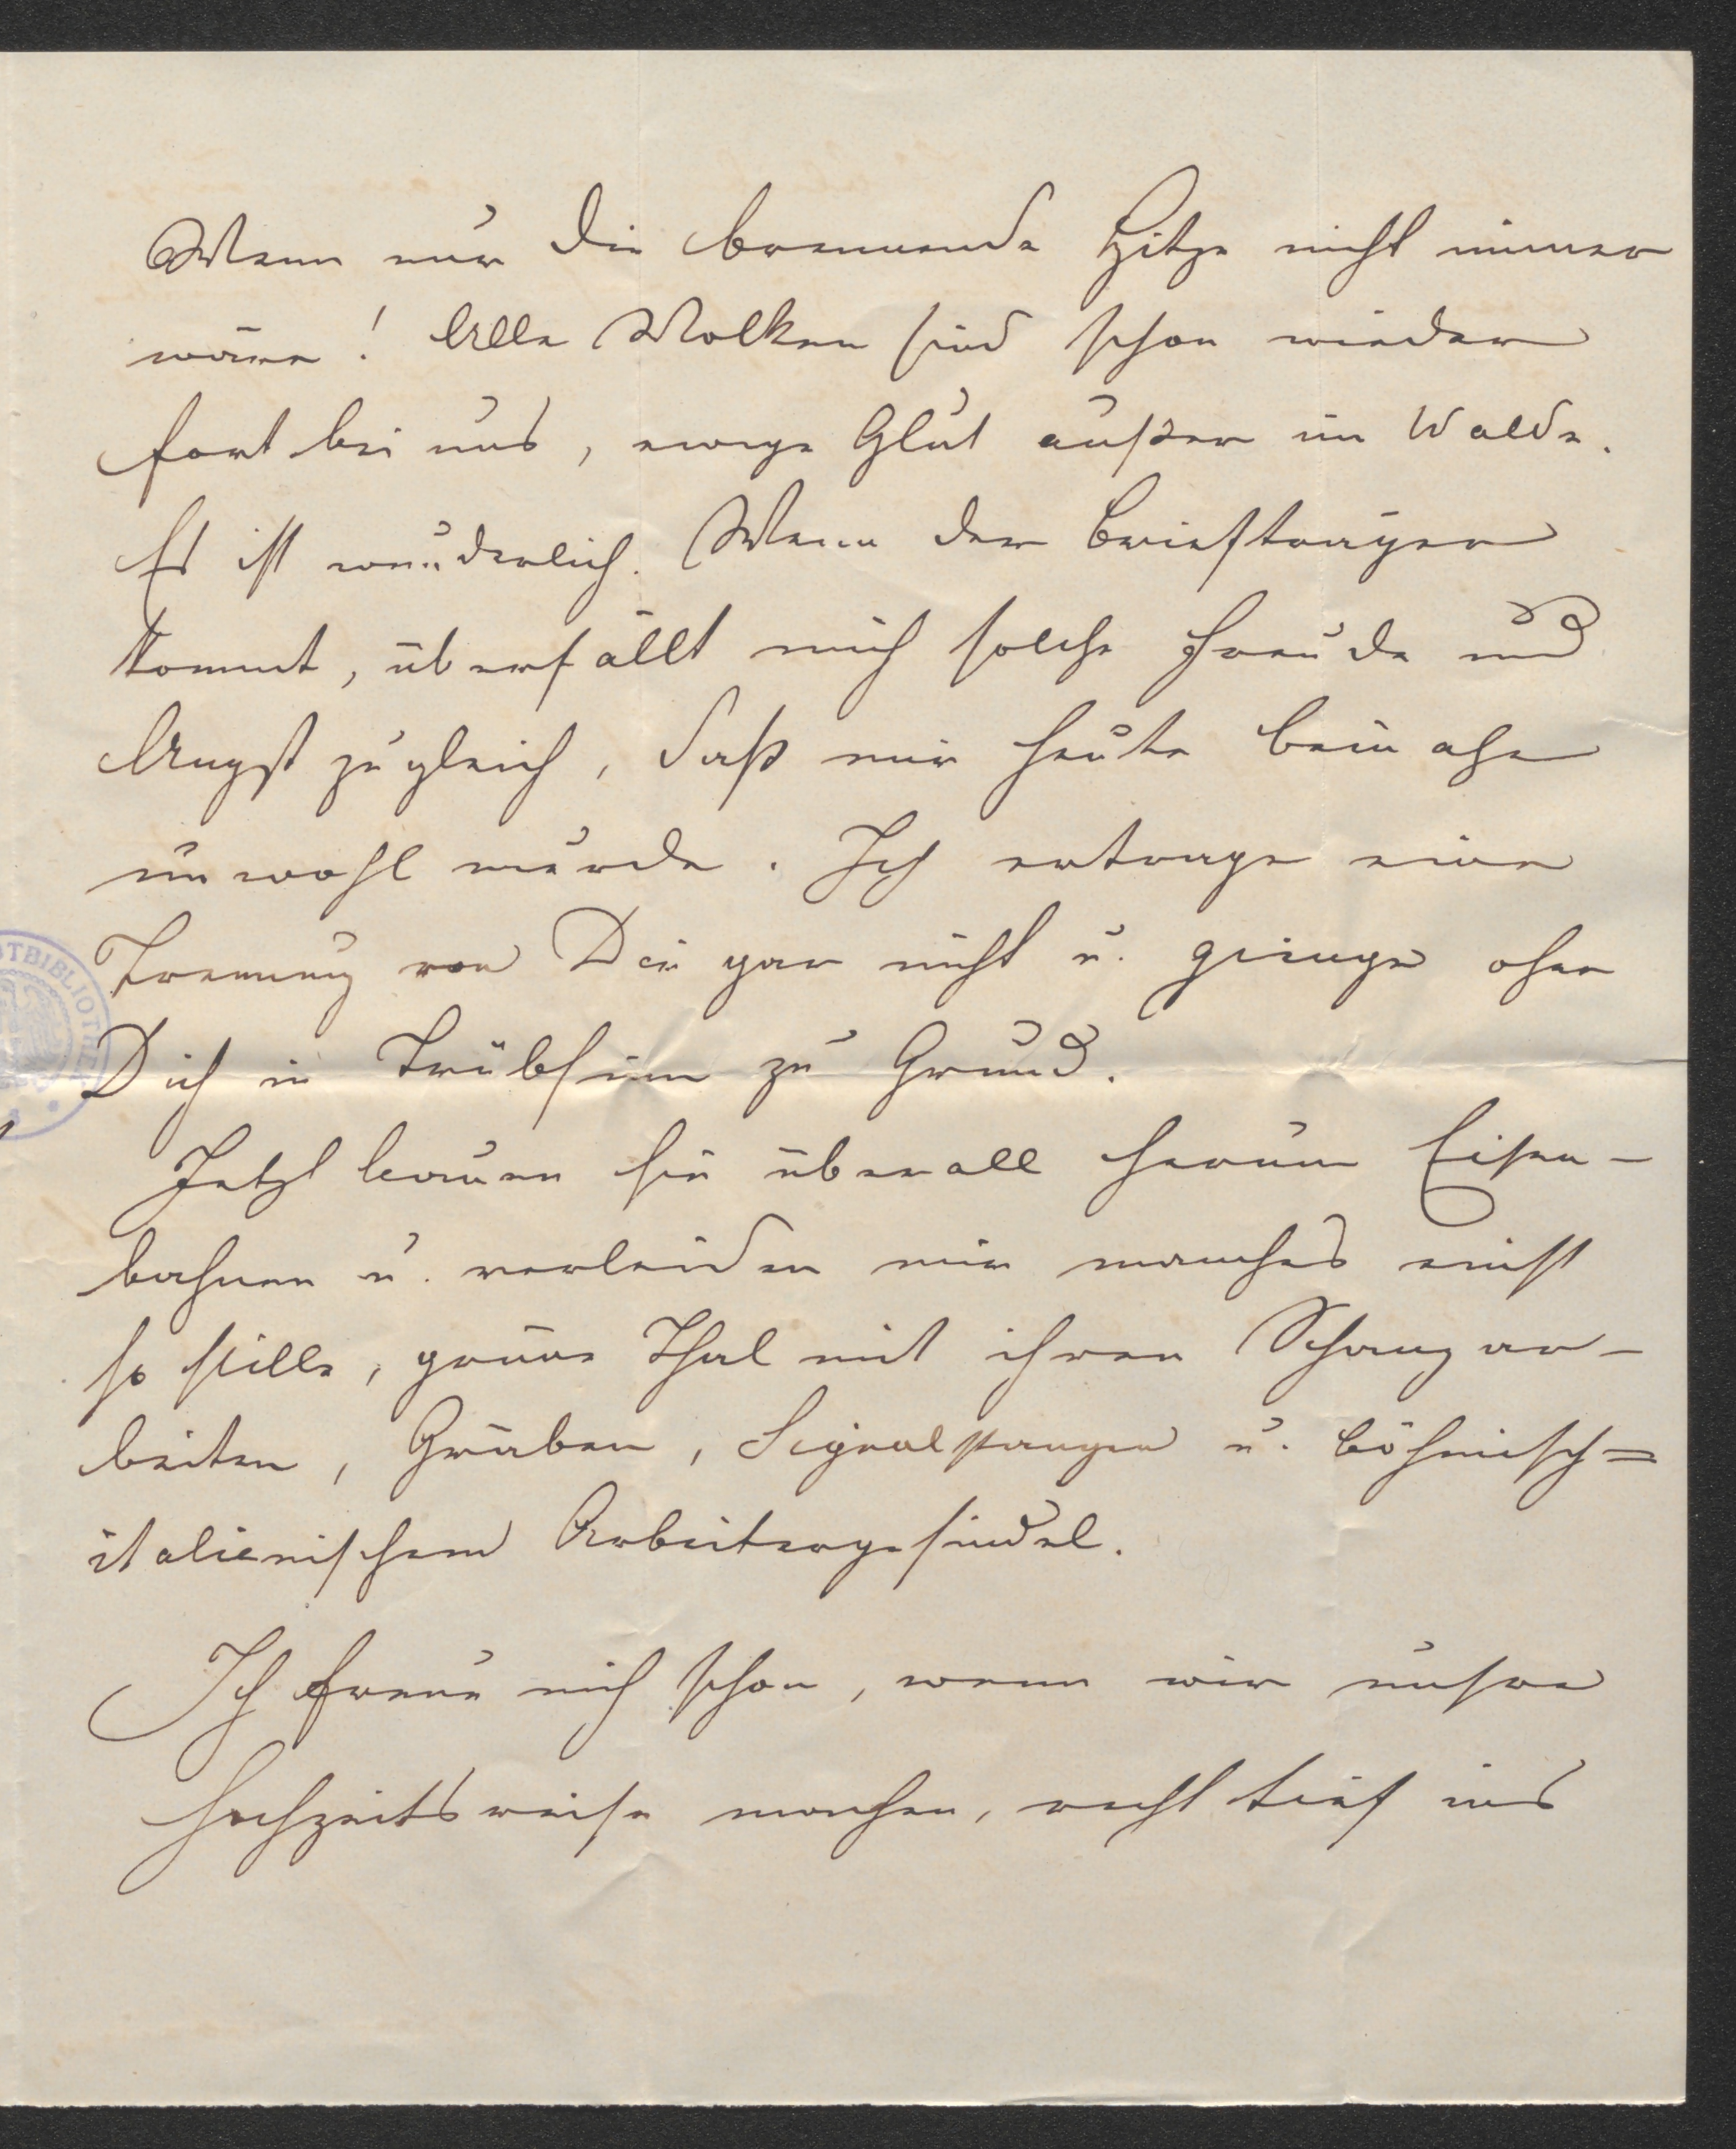 Wenn nur die brennende Hitze nicht immer
wäre! Alle Wolken sind schon wieder
fort bei uns, ewige Glut außer im Walde.
Es ist wunderlich. Wenn der Briefträger
kommt, überfällt mich solche Freude und
Angst zugleich, daß mir heute beinahe
unwohl wurde. Ich ertrage eine
Trennung von Dir gar nicht u. ginge ohne
Dich in Trübsinn zu Grund.
Jetzt bauen sie überall herum Eisen-
bahnen u. verleiden mir manches einst
so stille, grüne Thal mit ihren Schanzar-
beiten, Gräben, Signalstangen u. böhmisch=
italienischem Arbeitergesindel.
Ich freue mich schon, wenn wir unsre
Hochzeitsreise machen, recht tief ins